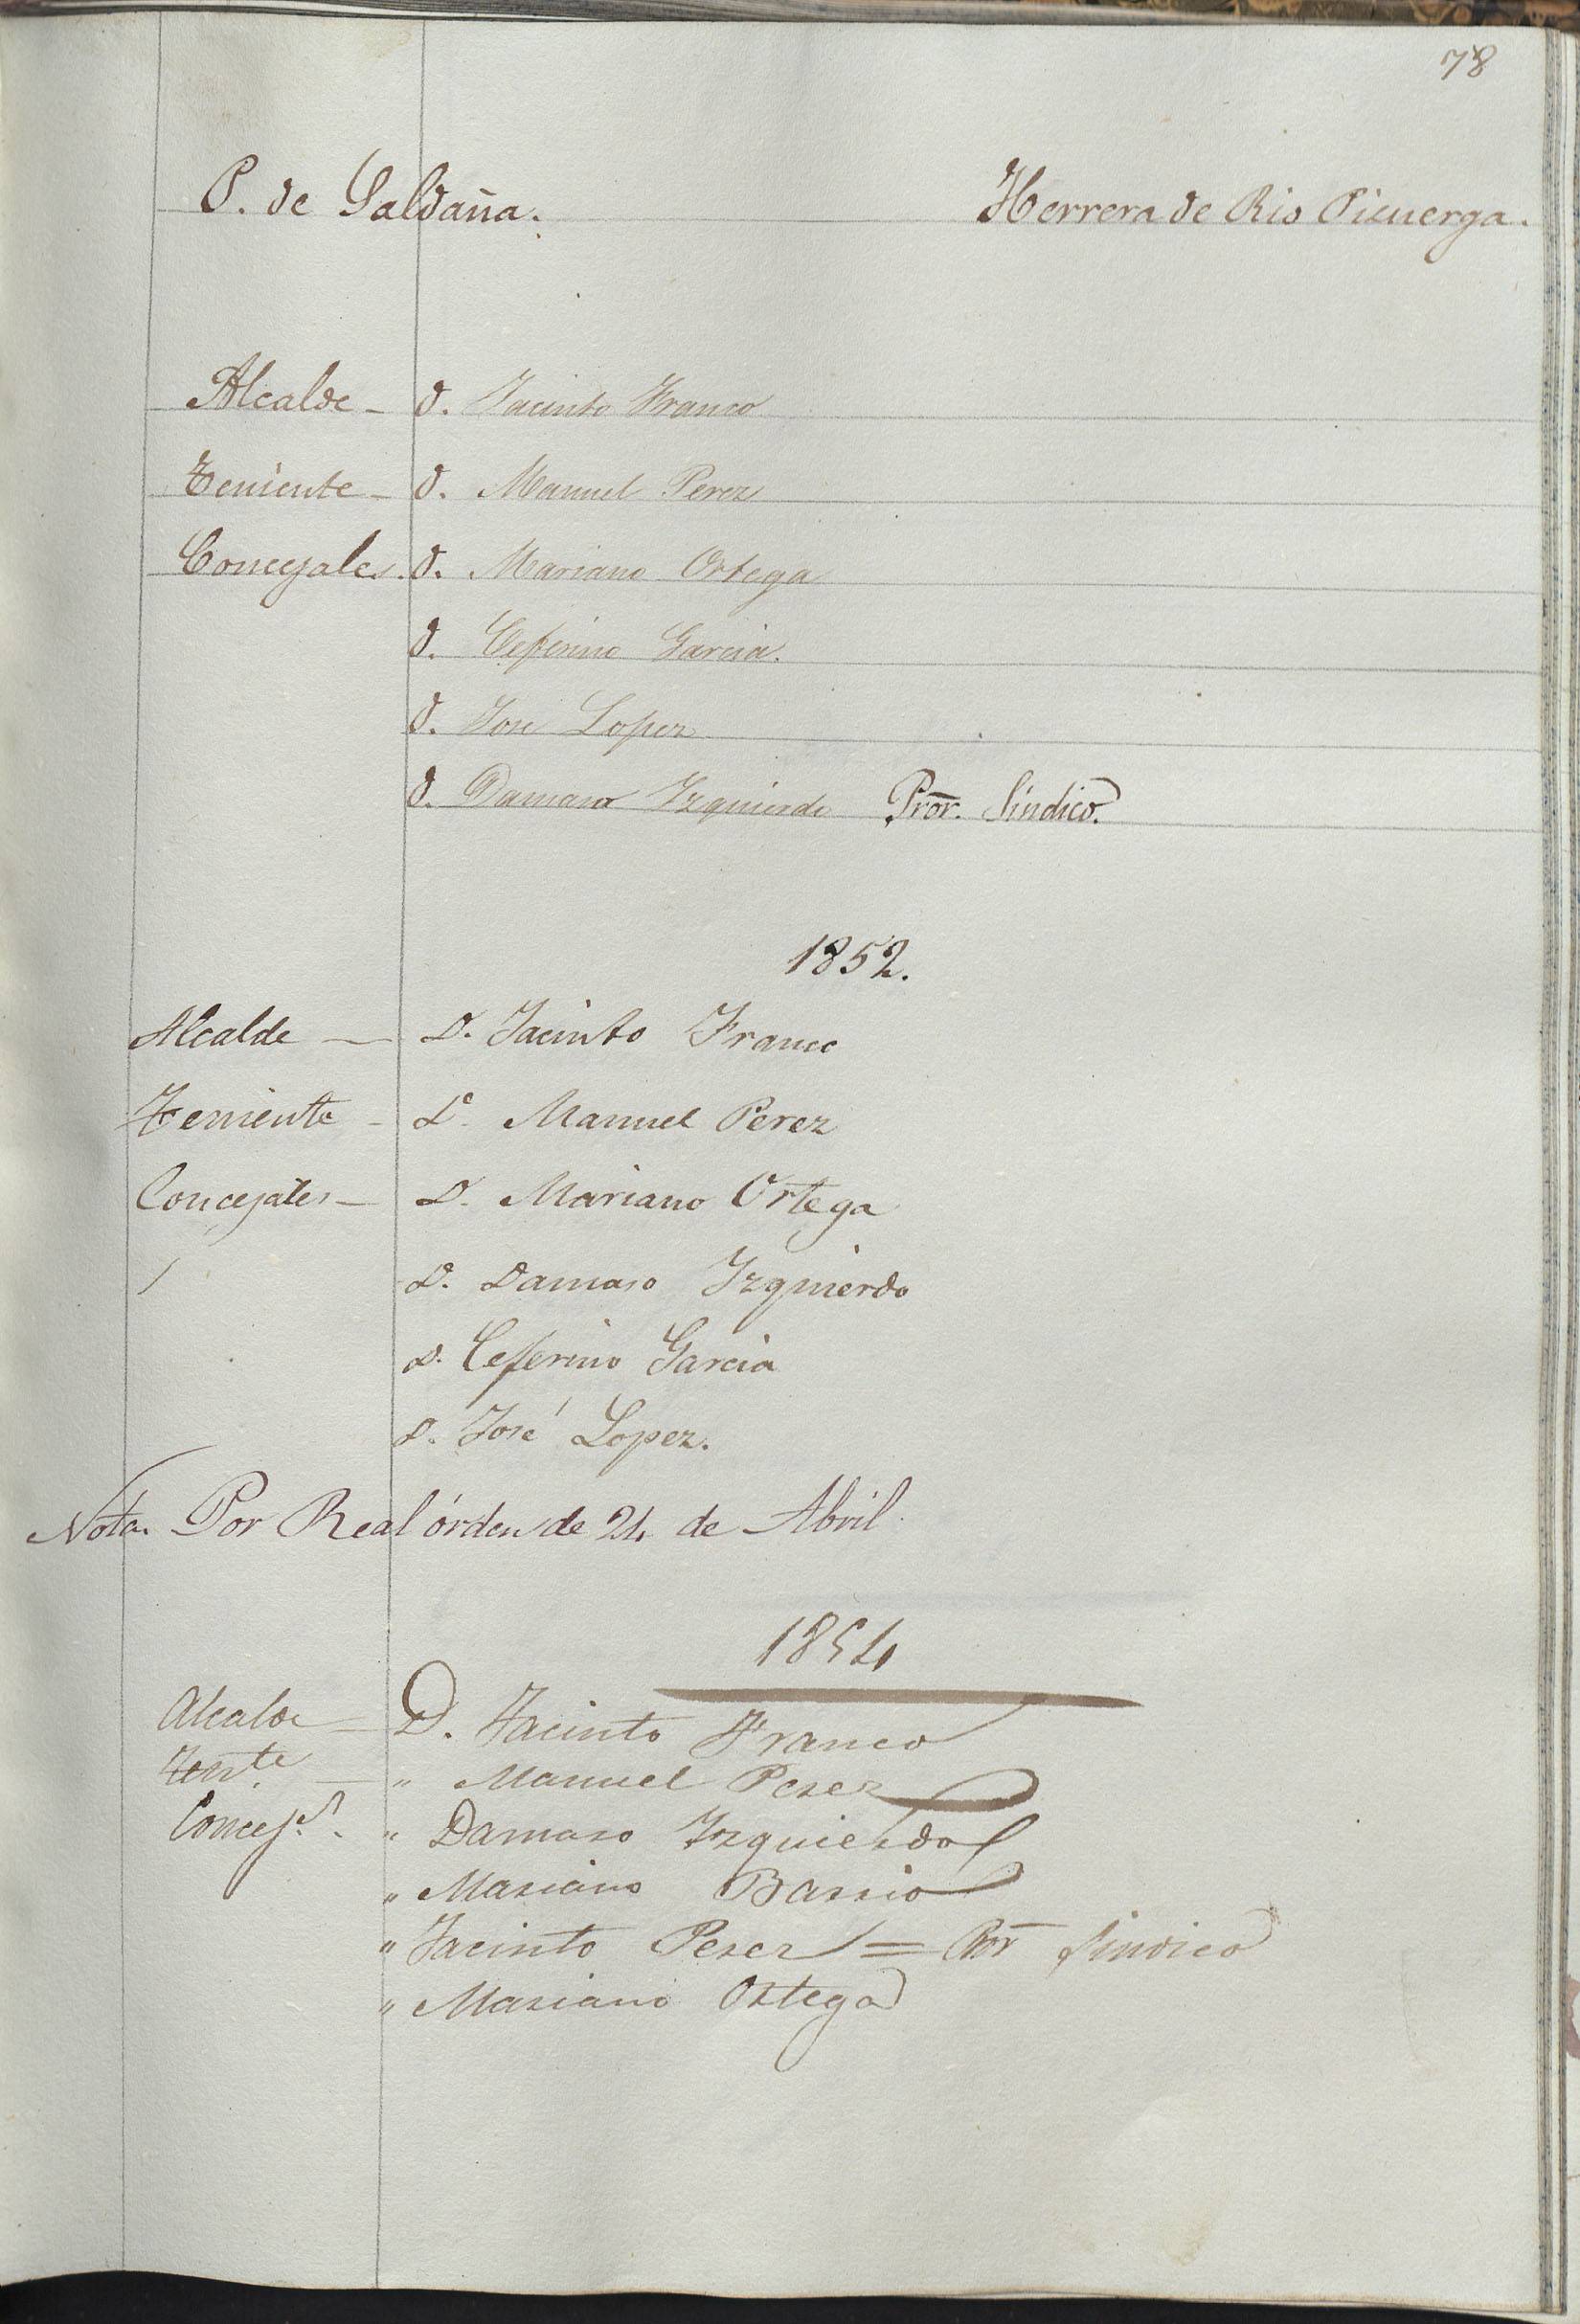 78
P. de Saldaña. Herrera de Rio Pisuerga.
Alcalde - D. Jacinto Franco
Teniente - D. Manuel Perez
Concejales. D. Mariano Ortega
D. Ceferino Garcia.
D. Jose Lopez
D. Damaso Yzquierdo Pror. Sindico.
1852.
Alcalde — D. Jacinto Franco
Teniente - D. Manuel Perez
Concejales - D. Mariano Ortega
D. Damaso Yzquierdo
D. Ceferino Garcia
D. José Lopez.
Nota. Por Real órden de 24 de Abril.
1854
Alcalde = D. Jacinto Franco
Tente. — " Manuel Perez
Concejs. " Damaso Yzquierdo
" Mariano Barrio
" Jacinto Perez = Pror Sindico
" Mariano Ortega